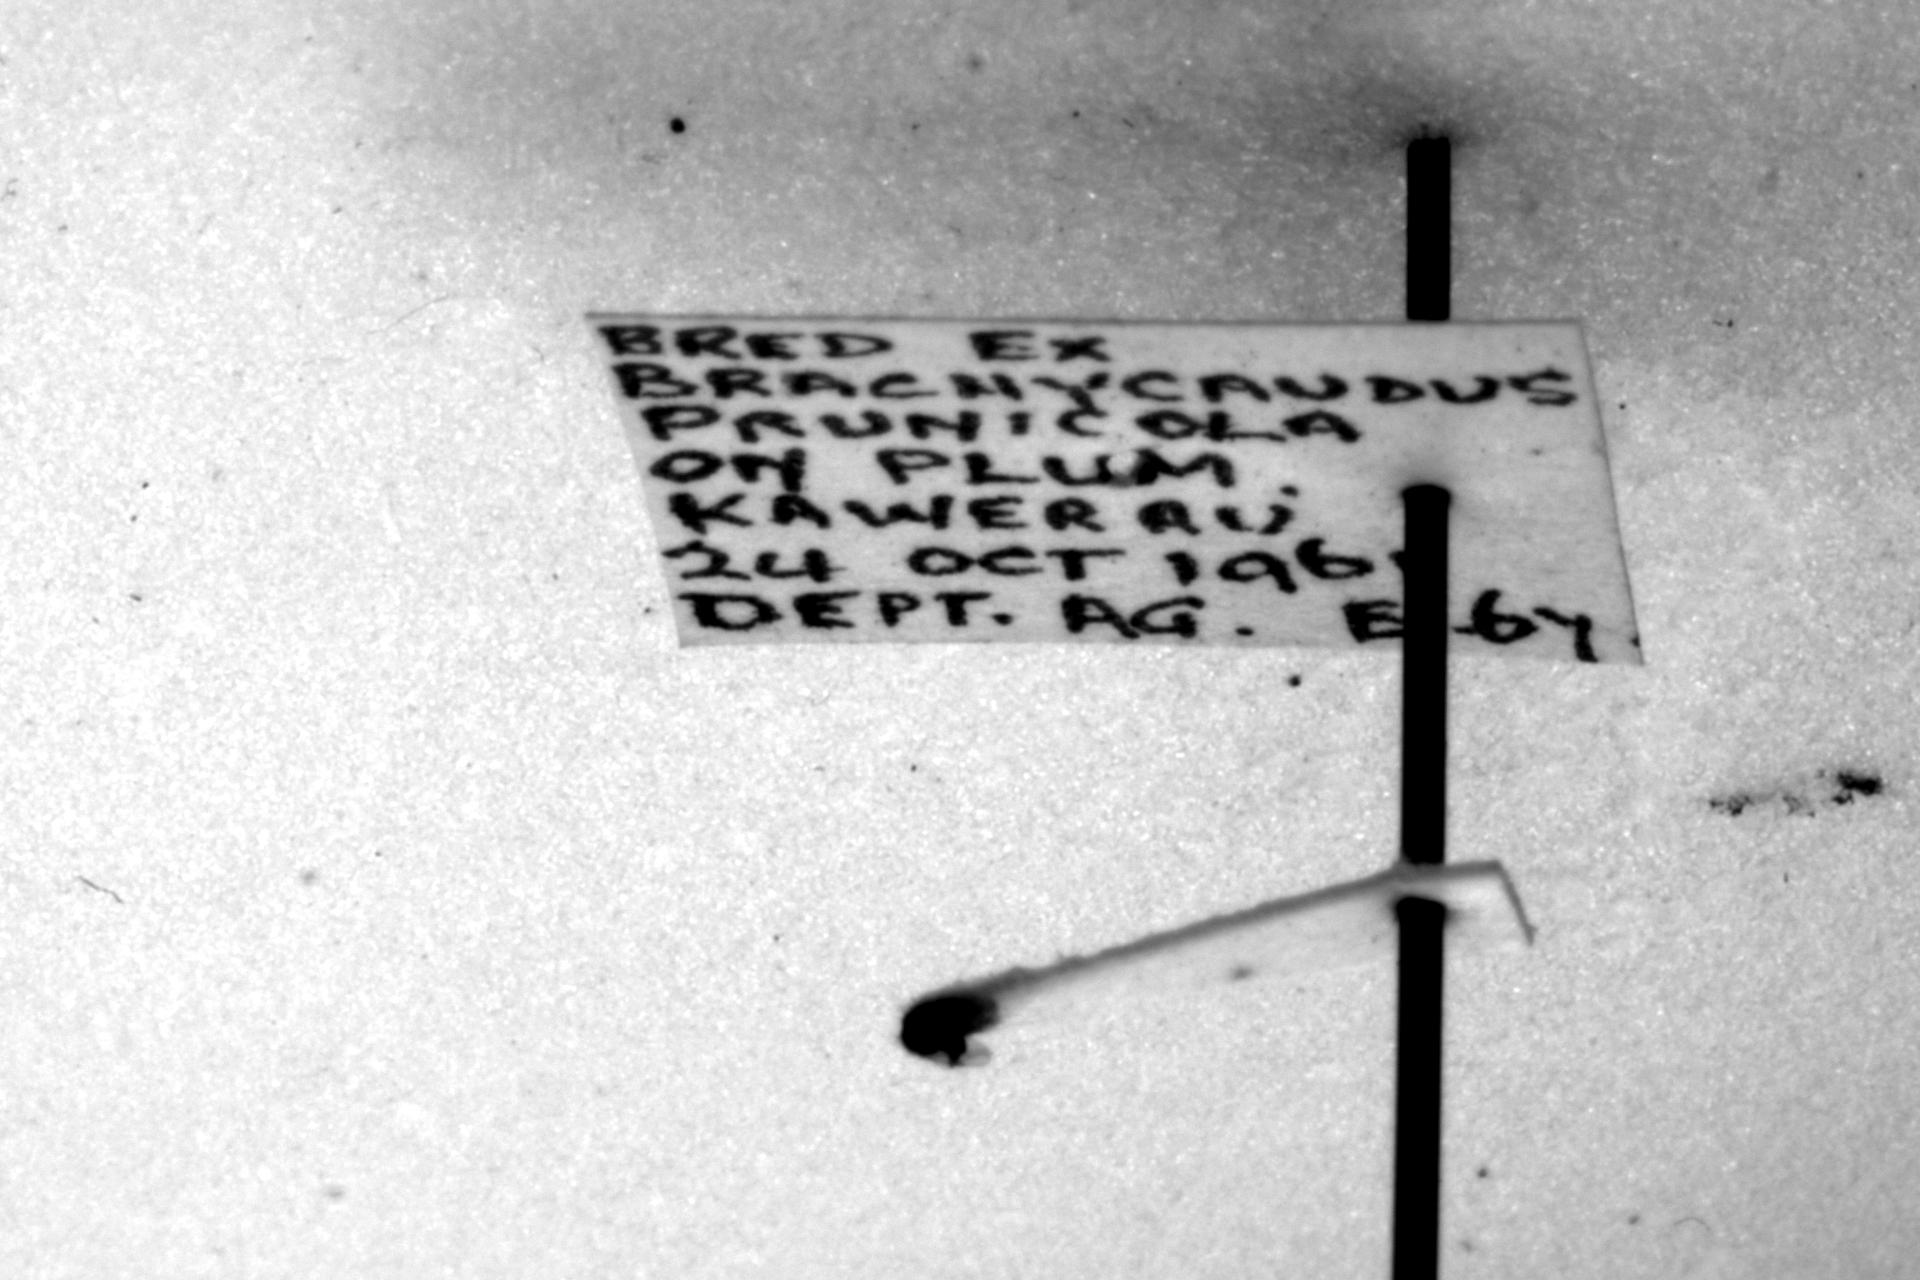 BRED EX
BRACHYCAUDUS
PRUNICOLA
ON PLUM.
KAWERAU
24 OCT
DEPT. AG.